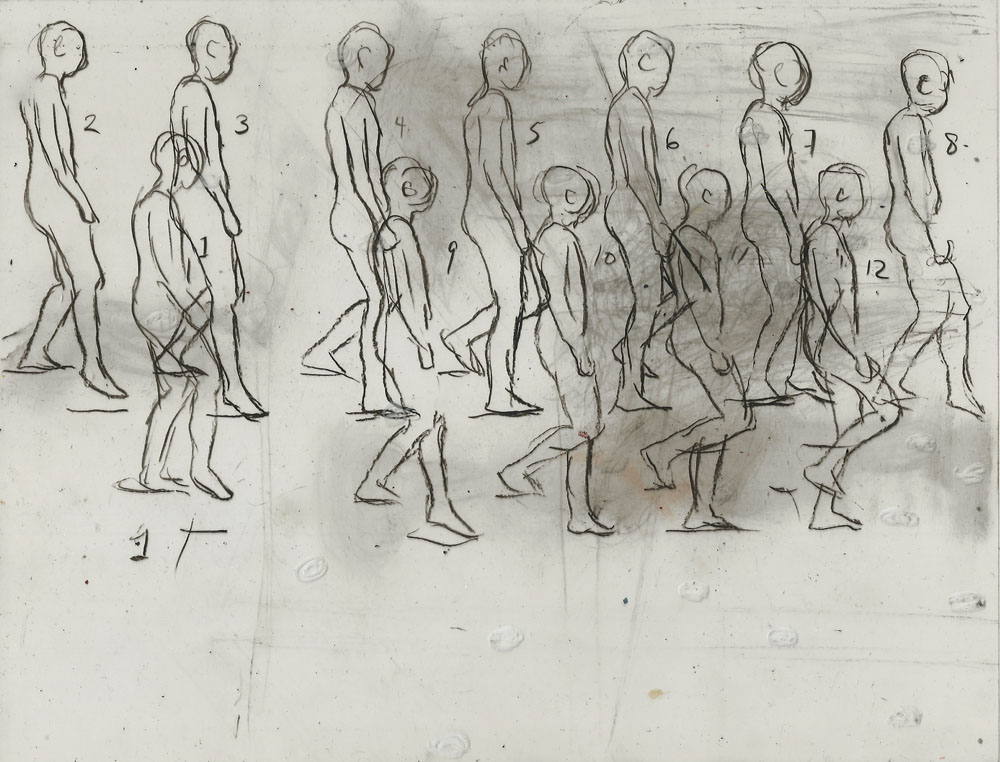 2
3
4
5
6
7
8
1
9
10
11
12
1